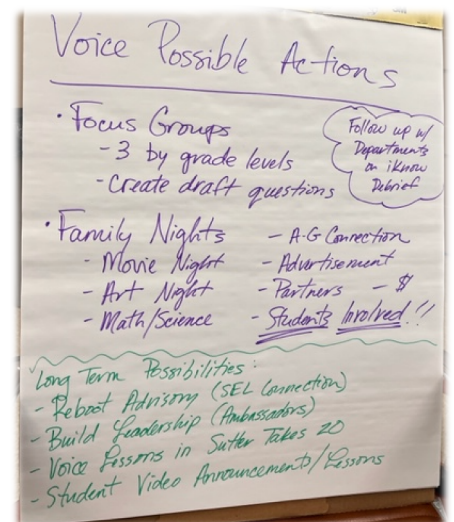 Voice Possible Actions
· Focus Groups
- 3 by grade levels
- Create draft questions
Follow up w/
Departments
on iKnow
Debrief
· Family Nights
- Movie Night
- Art Night
- Math/Science
- A-G Connection
- Advertisement
- Partners - $
- Students Involved!!
Long Term Possibilities:
- Reboot Advisory (SEL Connection)
- Build Leadership (Ambassadors)
- Voice Lessons in Sutter Takes 20
- Student Video Announcements/Lessons